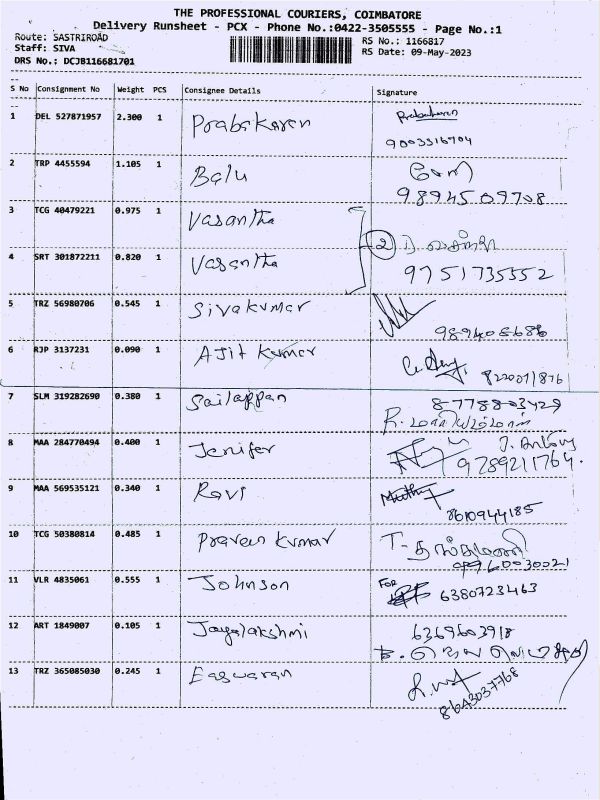 THE PROFESSIONAL COURIERS, COIMBATORE
Delivery Runsheet - PCX - Phone No.:0422-3505555 - Page No.:1
Route: SASTRIROAD
Staff: SIVA
DRS No.: DCJB116681701
RS No.: 1166817
RS Date: 09-May-2023
S No Consignment No Weight PCS Consignee Details Signature
1 DEL 527871957 2.300 1 Prabakaran Prabakaran
9003316704
2 TRP 4455594 1.105 1 Balu
9894509708
3 TCG 40479221 0.975 1 Vasantha
4 SRT 301872211 0.820 1 Vasantha 2
9751735552
5 TRZ 56980706 0.545 1 Sivakumar
9894005686
6 RJP 3137231 0.090 1 Ajit Kumar
7 SLM 319282690 0.380 1 Sailappan 8778803429
8 MAA 284770494 0.400 1 Jenifer J. Antony
9789211764.
9 MAA 569535121 0.340 1 Ravi Muthu
8610944185
10 TCG 50380814 0.485 1 Praveen Kumar
11 VLR 4835061 0.555 1 Johnson FOR
6380723463
12 ART 1849007 0.105 1 Jayalakshmi 6369603918
13 TRZ 365085030 0.245 1 Easwaran
8643037768